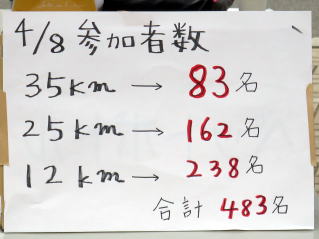 4/8 参加者数
35km → 83名
25km → 162名
12km → 238名
合計 483名